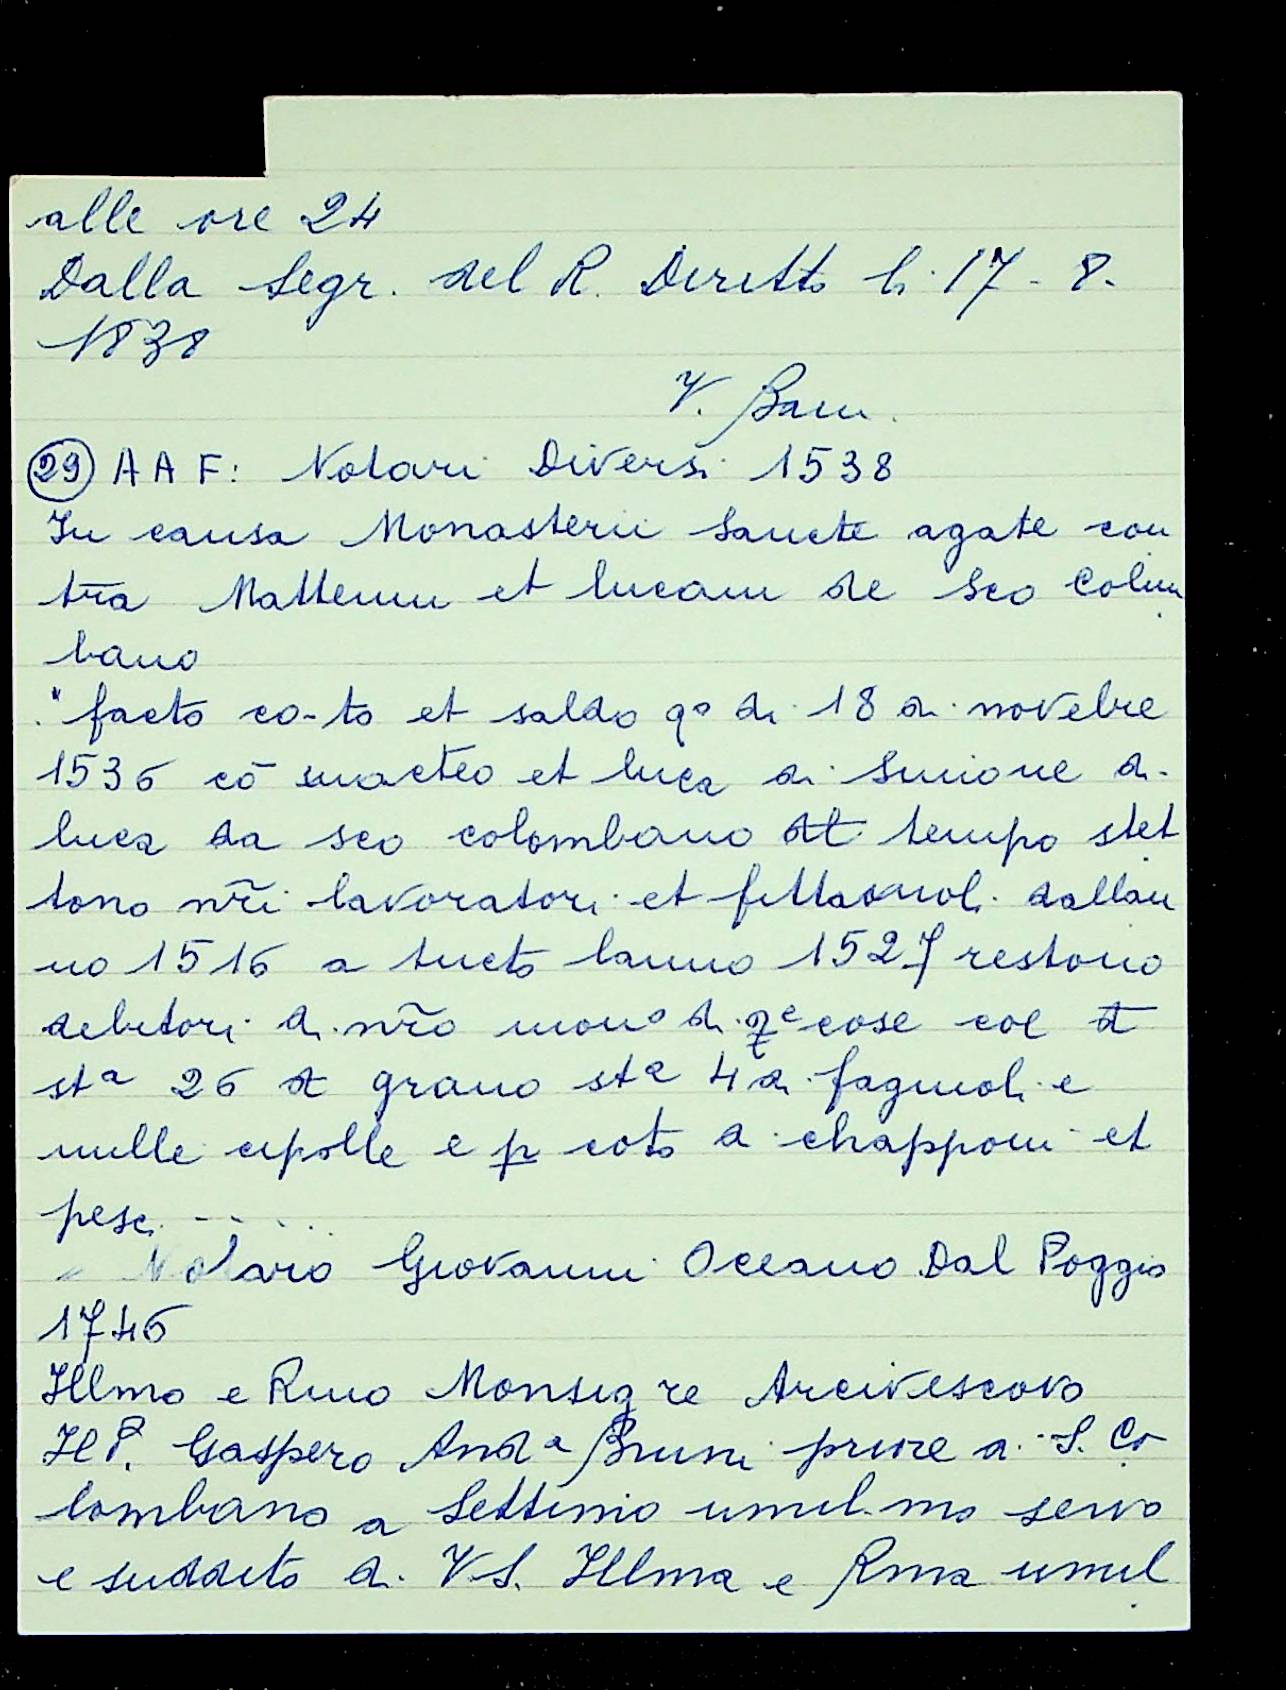 alle ore 24
Dalla Segr. del R. Diritto li 17 - 8.
1838
V. Bani.
29 A A F: Notari Diversi 1538
In causa Monasterii Sancte agate con
tra Matteum et lucam de Sco Colum
bano
"facto co-to et saldo qº di 18 di novebre
1536 cō macteo et luca di Simone di
luca da sco colombano dt tempo stet
tono nr̃i lavoratori et fittaiuoli dallan
no 1516 a tucto lanno 1527 restono
debitori di nr̃o monº di qe cose coe
stª 26 grano stª 4 di fagiuoli e
mille cipolle e p coto di chapponi et
pesci - - . . .
Notaro Giovanni Oceano Dal Poggio
1746
Illmo e Rmo Monsigre Arcivescovo
Il P. Gaspero Andª Bruni priore a S. Co
lombano a Settimo umil.mo servo
e suddito di V.S. Illma e Rma umil